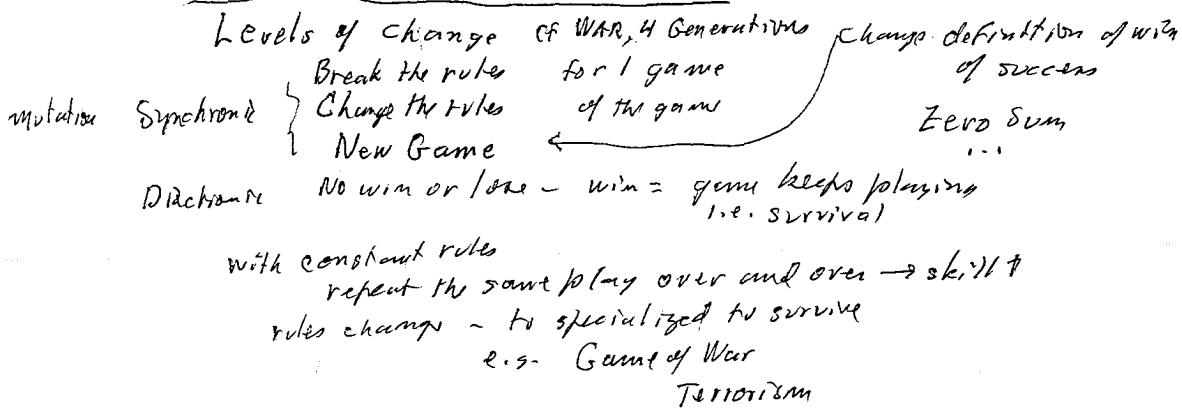 Levels of change cf WAR, 4 Generations
change definition of win
of success
Break the rules for 1 game
mutation Synchronic { Change the rules of the game
Zero Sum
...
New Game
Diachronic No win or lose - win = game keeps playing
i.e. survival
with constant rules
repeat the same play over and over → skill ↑
rules change - to specialized to survive
e.g. Game of War
Terrorism